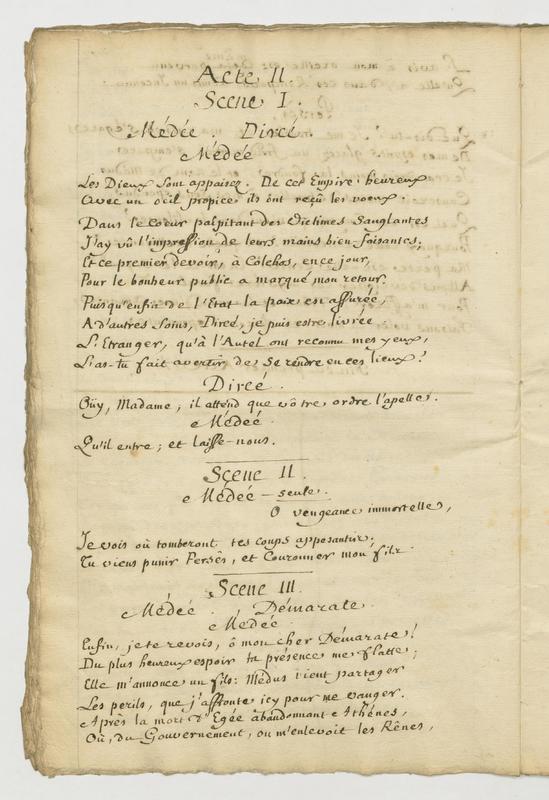 Acte II.
Scene I.
Médée. Dircé.
Médée.
Les Dieux sont appaisez. De cet Empire heureux
Avec un oeil propice ils ont reçû les voeux.
Dans le coeur palpitant des Victimes sanglantes
J'ay vû l'impression de leurs mains bien-faisantes;
Et ce premier devoir, à Colchos, en ce jour,
Pour le bonheur public a marqué mon retour.
Puisqu'enfin de l'Etat la paix est assurée,
A d'autres soins, Dircé, je puis estre livrée
L'Etranger, qu'à l'Autel ont reconnu mes yeux,
L'as-tu fait avertir de se rendre en ces lieux?
Dircé.
Oüy, Madame; il attend que vôtre ordre l'apelle.
Médée.
Qu'il entre; et laisse-nous.
Scene II.
Médée - seule.
O vengeance immortelle,
Je vois où tomberont tes coups appesantis.
Tu viens punir Persés, et Couronner mon fils.
Scene III.
Médée. Démarate.
Médée.
Enfin, je te revois, ô mon cher Démarate!
Du plus heureux espoir ta présence me flatte;
Elle m'annonce un fils: Médus vient partager
Les perils, que j'affronte icy pour me vanger.
Après la mort d'Egée abandonnant Athénes,
Où, du Gouvernement, on m'enlevoit les Rênes,